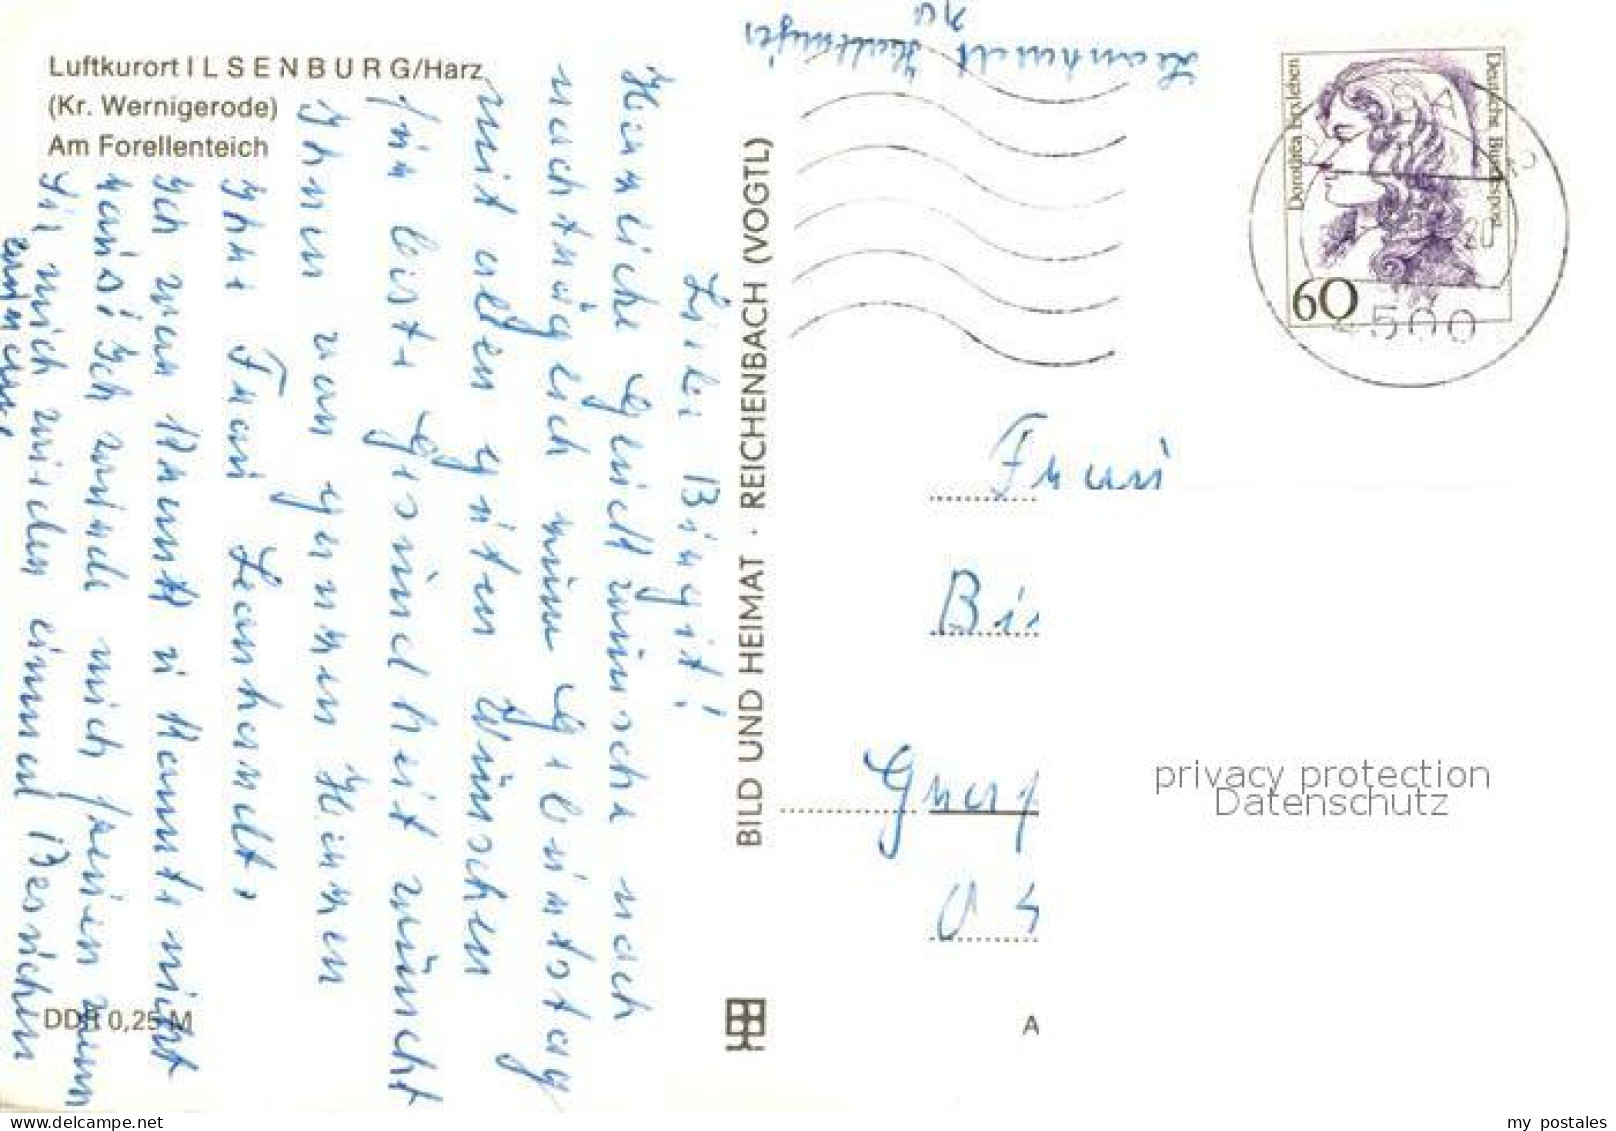 Luftkurort ILSENBURG/Harz
(Kr. Wernigerode)
Am Forellenteich
Liebe Birgit!
Herzliche Glückwünsche noch
nachträglich zum Geburtstag
mit allen guten Wünschen
für beste Gesundheit wünscht
Ihnen von ganzem Herzen
Ihre Frau Leonhardt.
Ich war krank u. konnte nicht
raus! Ich würde mich freuen wenn
Sie mich würden einmal Besuchen
DDR 0,25 M
BILD UND HEIMAT · REICHENBACH (VOGTL)
Leonhardt
Deutsche Bundespost
Dorothea Erxleben
60
4500
Frau
Bi
A
privacy protection
Datenschutz
www.delcampe.net
my_postales